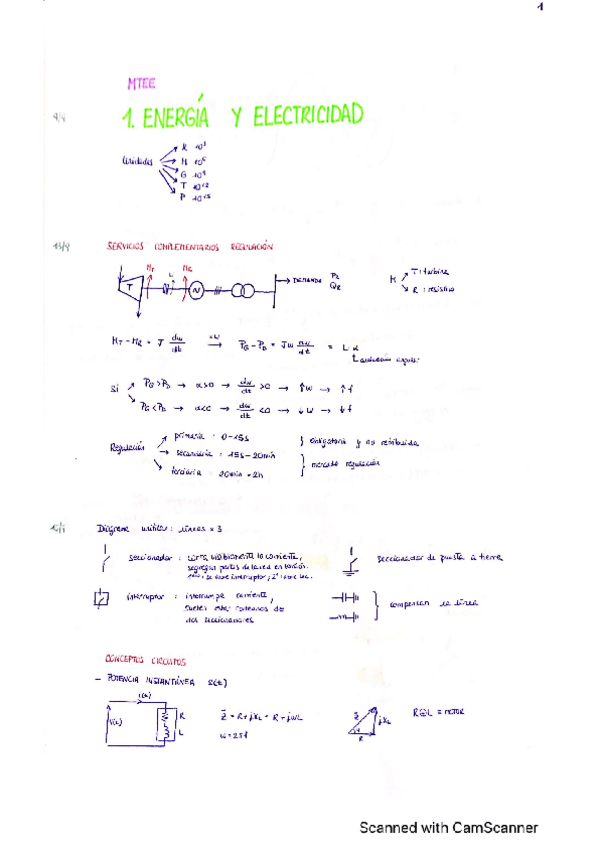 1
MTEE
9/9
1. ENERGÍA Y ELECTRICIDAD
Unidades
K 10³
M 10⁶
G 10⁹
T 10¹²
P 10¹⁵
13/9
SERVICIOS COMPLEMENTARIOS REGULACIÓN
M_T M_R
T
DEMANDA P_R
Q_R
M T: turbina
R: resistivo
M_T - M_R = J dw/dt → P_G - P_D = Jw dw/dt = L·α
Si P_G > P_D → α>0 → dw/dt >0 → ↑w → ↑f
P_G < P_D → α<0 → dw/dt <0 → ↓w → ↓f
Regulación
primaria: 0-15s
secundaria: 15s-20min
terciaria: 20min-2h
} obligatoria y no retribuida
} mercado regulación
Diagrama unifilar: líneas = 3
seccionador: corta visiblemente la corriente,
segregar partes de la red en tensión.
1º: se abre interruptor; 2º: abre sec.
seccionador de puesta a tierra
interruptor: interrumpe corriente,
suelen estar rodeados de
dos seccionadores
compensan la línea
CONCEPTOS CIRCUITOS
- POTENCIA INSTANTÁNEA s(t)
i(t)
v(t)
R
L
Z = R + jX_L = R + jwL
w = 2πf
Z
jX_L
R
R⊕L = MOTOR
Scanned with CamScanner